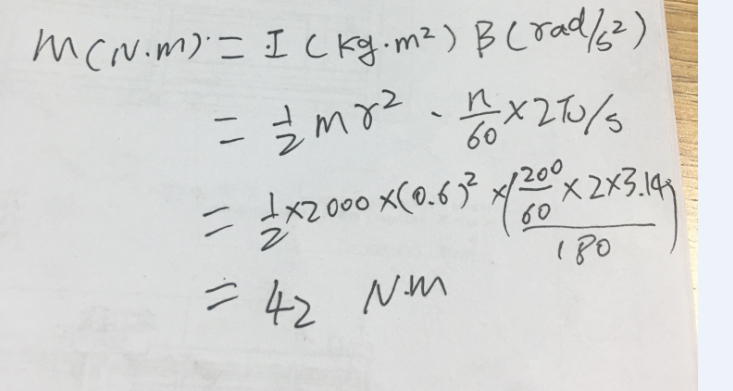 M(N·m) = I (kg·m²) β (rad/s²)
= 1/2 m r² · n/60 × 2π/s
= 1/2 × 2000 × (0.6)² × (200/60 × 2 × 3.14 / 180)
= 42 N·m